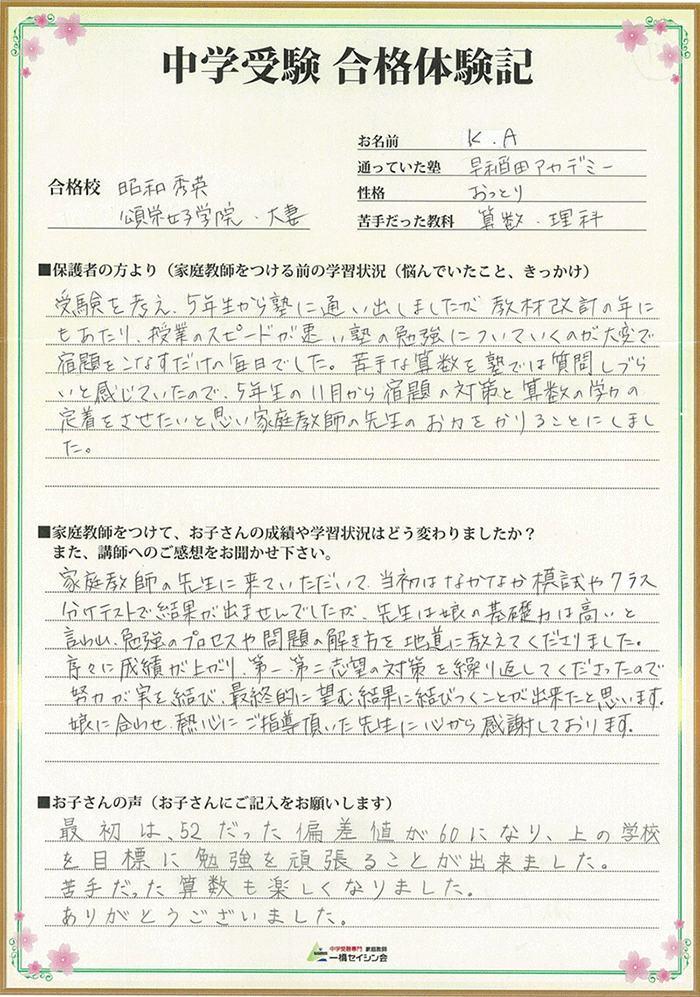 中学受験 合格体験記
お名前 K.A
通っていた塾 早稲田アカデミー
合格校 昭和秀英
性格 おっとり
頌栄女子学院・大妻
苦手だった教科 算数・理科
■保護者の方より（家庭教師をつける前の学習状況（悩んでいたこと、きっかけ）
受験を考え、5年生から塾に通い出しましたが 教材改訂の年に
もあたり、授業のスピードが悪い塾の勉強についていくのが大変で
宿題をこなすだけの毎日でした。苦手な算数を塾では質問しづら
いと感じていたので、5年生の11月から宿題の対策と算数の学力の
定着をさせたいと思い家庭教師の先生のお力をかりることにしまし
た。
■家庭教師をつけて、お子さんの成績や学習状況はどう変わりましたか？
また、講師へのご感想をお聞かせ下さい。
家庭教師の先生に来ていただいて、当初はなかなか模試やクラス
分けテストで結果が出ませんでしたが、先生は娘の基礎力は高いと
言われ、勉強のプロセスや問題の解き方を地道に教えてくださりました。
序々に成績が上がり、第一第二志望の対策を繰り返してくださったので
努力が実を結び、最終的に望む結果に結びつくことが出来たと思います。
娘に合わせ、熱心にご指導頂いた先生に心から感謝しております。
■お子さんの声（お子さんにご記入をお願いします）
最初は、52だった偏差値が60になり、上の学校
を目標に勉強を頑張ることが出来ました。
苦手だった算数も楽しくなりました。
ありがとうございました。
中学受験専門 家庭教師
一橋セイシン会